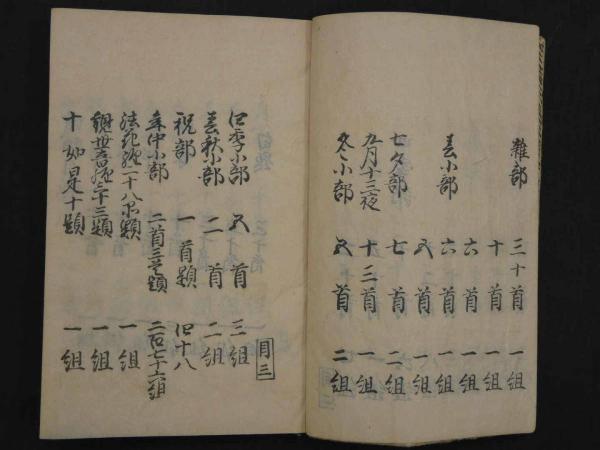 雑部 三十首 一組
十首 一組
六首 一組
春小部 六首 一組
五首 一組
七夕部 七首 二組
九月十三夜 十三首 一組
冬小部 五首 二組
目三
四季小部 五首 三組
春秋小部 二首 二組
祝部 一首題 四十八
年中小部 二首三首題 二百七十六組
法花経二十八品題 一組
観世音経三十三題 一組
十如是十題 一組